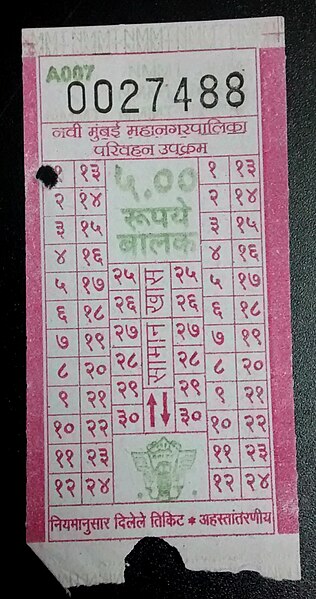 A007
0027488
नवी मुंबई महानगरपालिका
परिवहन उपक्रम
१ १३ ५.०० १ १३
२ १४ रूपये २ १४
३ १५ बालक ३ १५
४ १६ ४ १६
५ १७ २५ २५ ५ १७
६ १८ २६ २६ ६ १८
७ १९ २७ २७ ७ १९
८ २० २८ २८ ८ २०
९ २१ २९ २९ ९ २१
१० २२ ३० ३० १० २२
११ २३ ११ २३
१२ २४ १२ २४
सामान खास
नियमानुसार दिलेले तिकिट * अहस्तांतरणीय